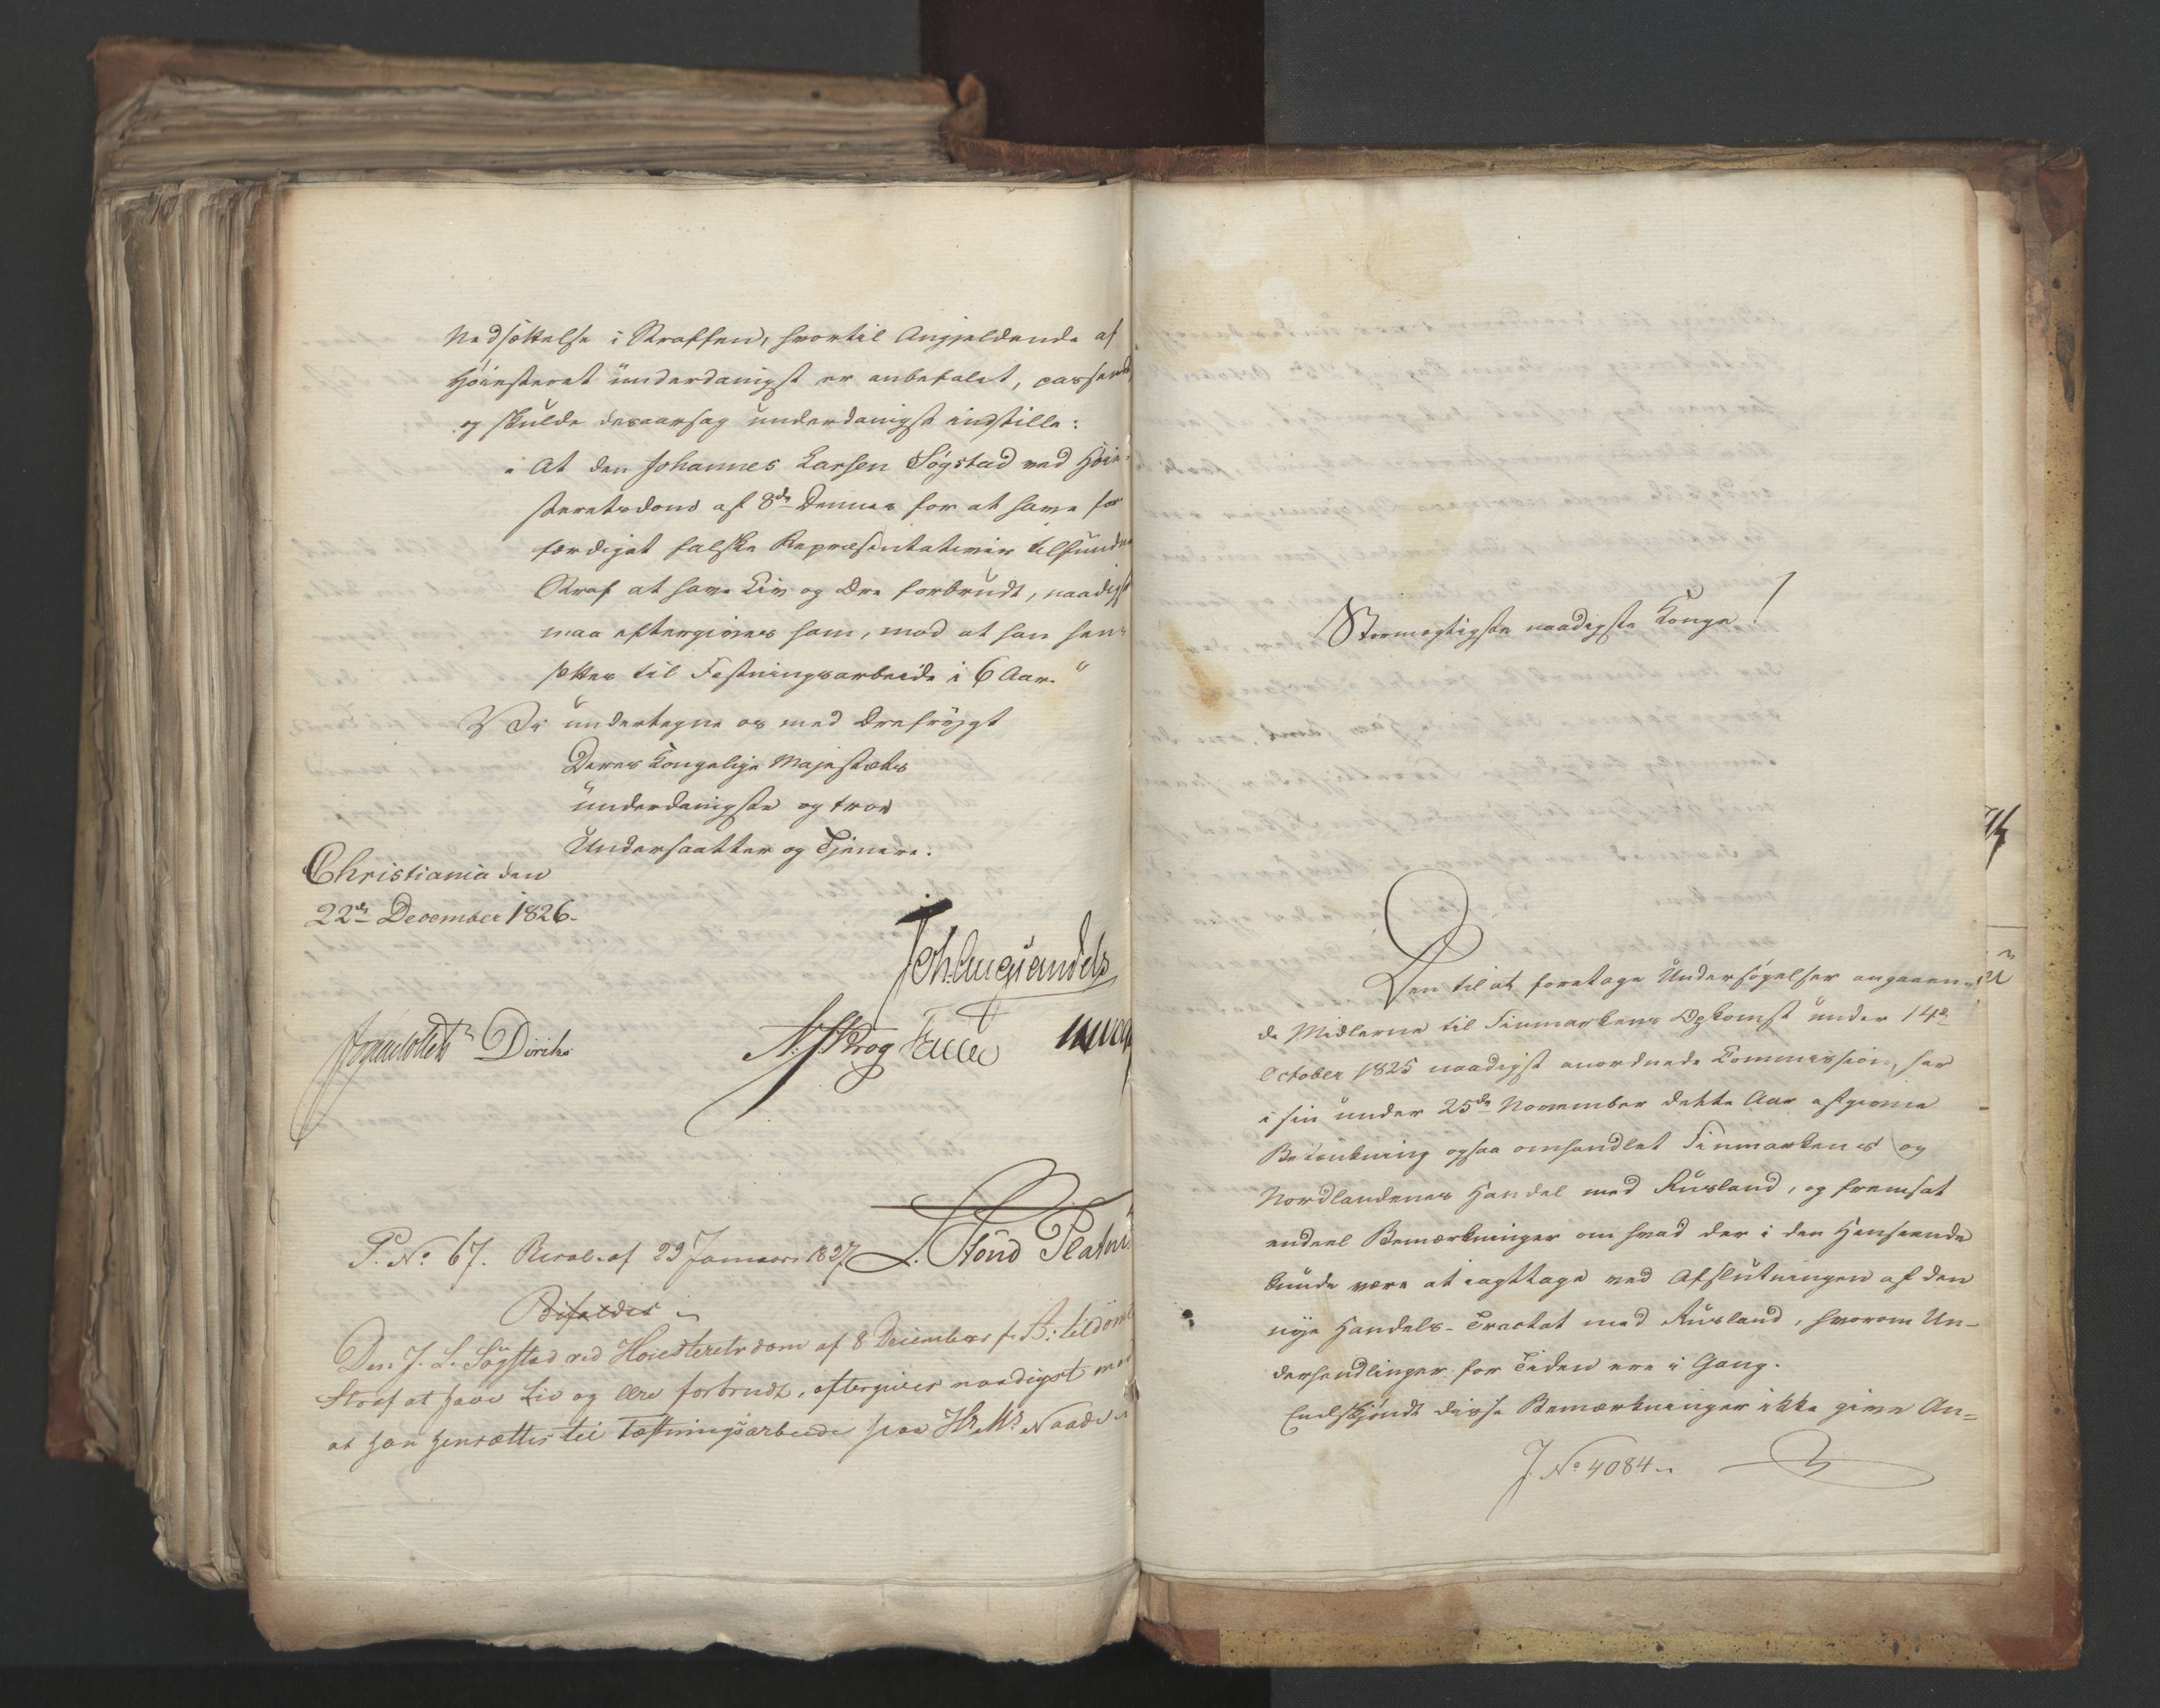 Nedsættelse i Straffen, hvortil Angjeldende af
Höiesteret underdanigst er anbefalet, passende,
og skulde desaarsag underdanigst indstille:
"At den Johannes Larsen Søgstad ved Høie-
steretsdom af 8de Dennes for at have for
færdiget falske Repræsentativer tilfunden
Straf at have Liv og Ære forbrudt, naadigst
maa eftergives ham, mod at han hen-
sættes til Fæstningsarbeide i 6 Aar."
Vi undertegne os med Ærefrygt
Deres Kongelige Majestæts
underdanigste og troe
Undersaatter og Tjenere.
Christiania den
22de December 1826.
Joh. Aug. Sandels
Diriks
Krog
P. No. 67. Resol. af 23 Januar 1827
Bifaldes
Den J. L. Søgstad ved Høiesteretsdom af 8 December f. A. tildømte
Straf at have Liv og Ære forbrudt, eftergives naadigst mod
at han hensættes til Fæstningsarbeide paa Hs. Ms. Naade
Stormægtigste naadigste Konge!
Den til at foretage Undersøgelser angaaen-
de Midlerne til Finmarkens Opkomst under 14de
October 1825 naadigst anordnede Commission, har
i sin under 25de November dette Aar afgivne
Betænkning ogsaa omhandlet Finmarkens og
Nordlandenes Handel med Rusland, og fremsat
endeel Bemærkninger om hvad der i den Henseende
kunde være at iagttage ved Afslutningen af den
nye Handels-Tractat med Rusland, hvorom Un-
derhandlinger for Tiden ere i Gang.
Endskjøndt disse Bemærkninger ikke give An-
J. No 4084